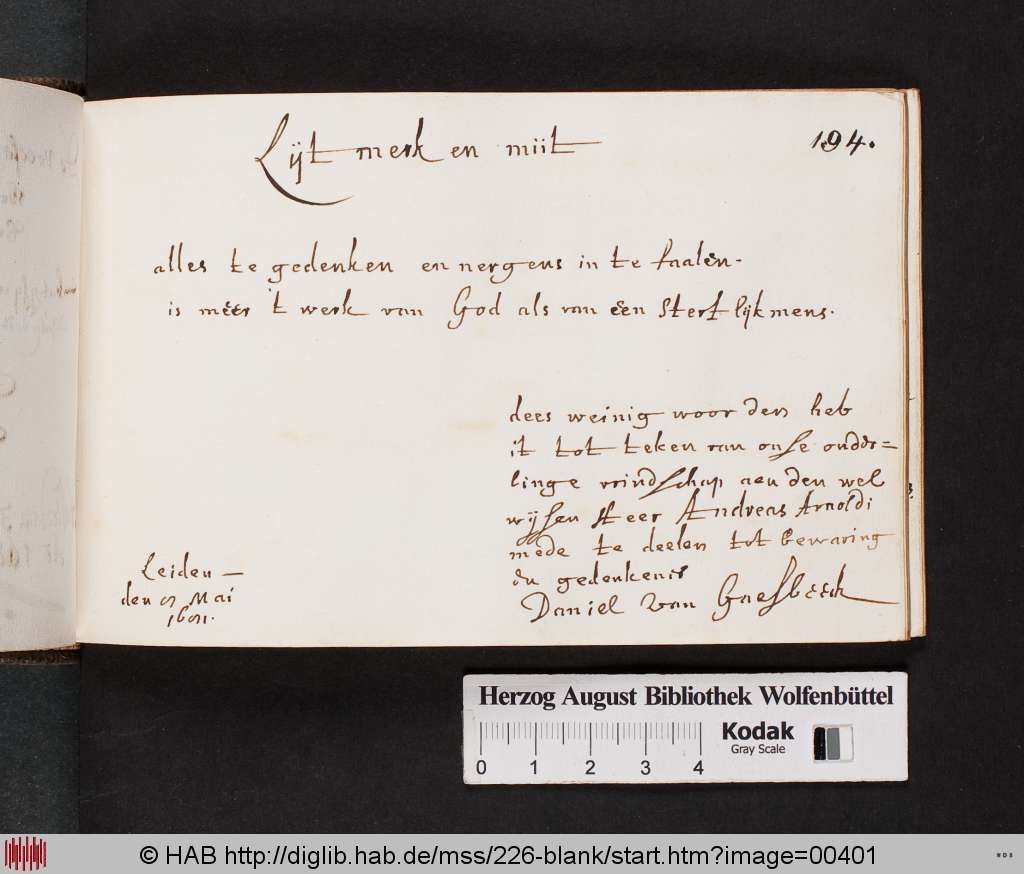 Lijt merk en miit
194.
alles te gedenken en nergens in te faalen.
is meer 't werk van God als van een Sterflijk mens.
dees weinig woorden heb
ik tot teken van onse onder=
linge vrindschap aen den wel
wijsen Heer Andreas Arnoldi
mede te deelen tot bewaring
en gedenkenis
Daniel van Gaesbeeck
Leiden —
den Mai
Herzog August Bibliothek Wolfenbüttel
Kodak
Gray Scale
0 1 2 3 4
© HAB http://diglib.hab.de/mss/226-blank/start.htm?image=00401